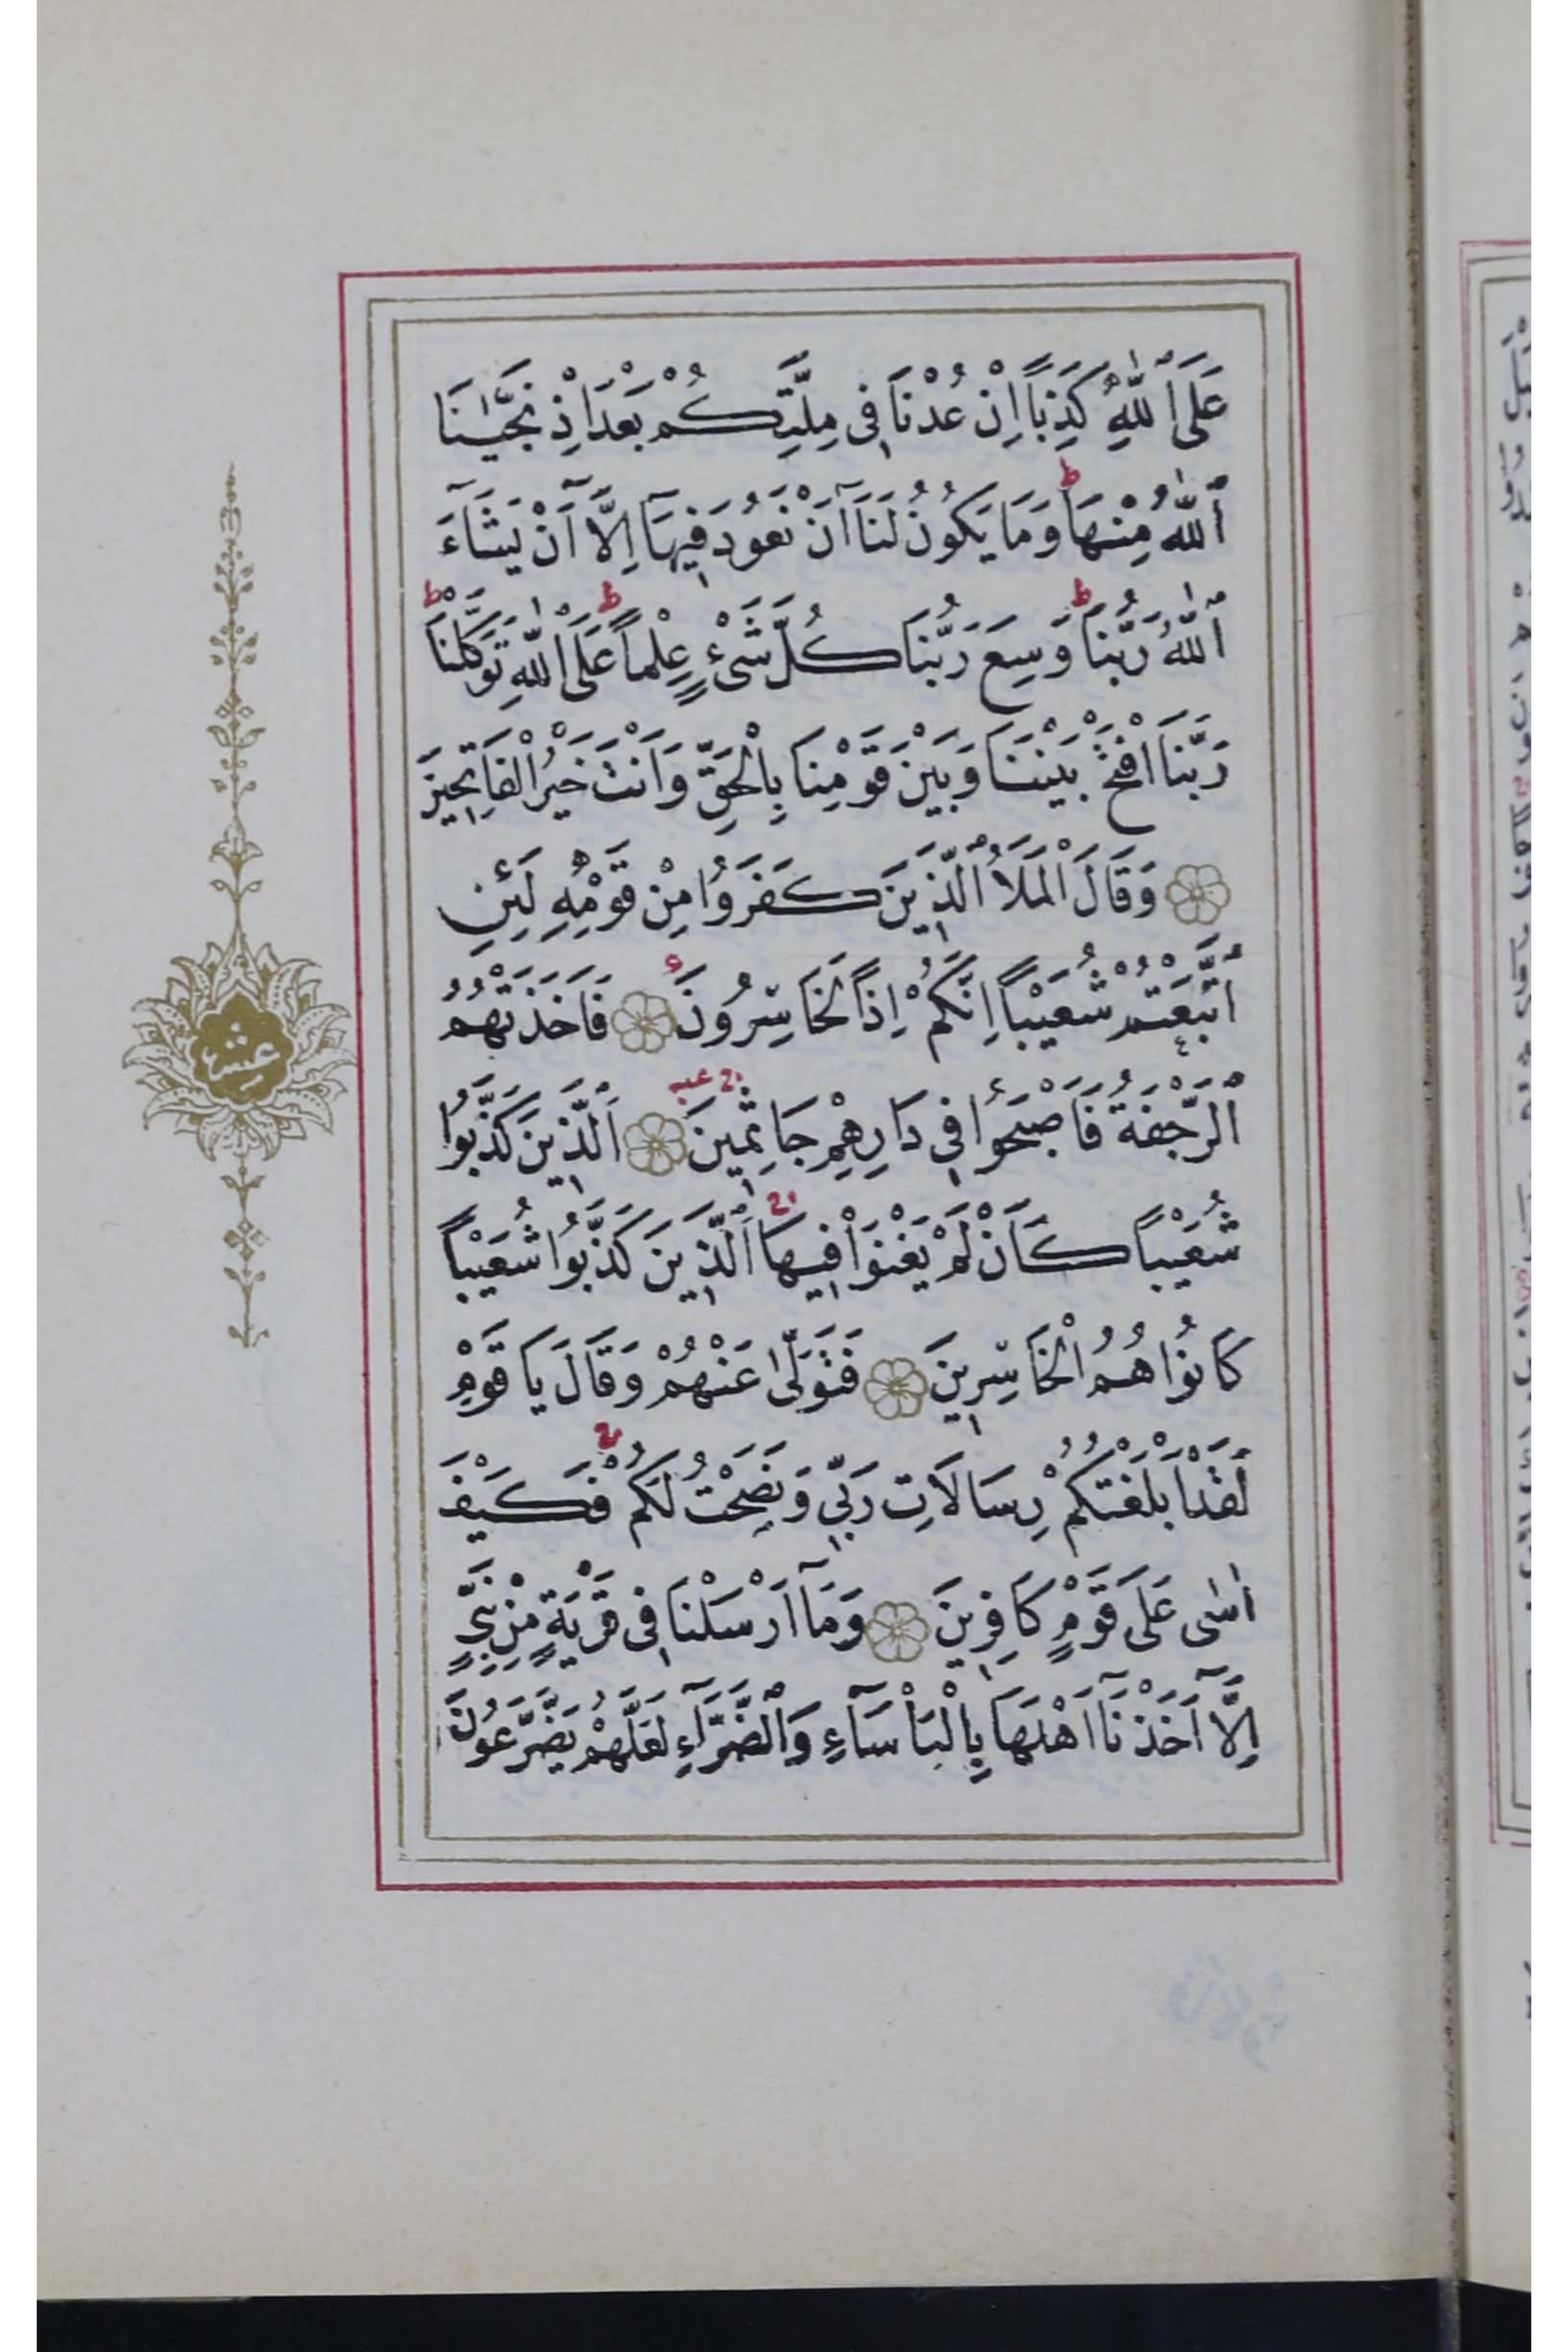 عَلَى ٱللّٰهِ كَذِباً اِنْ عُدْنَا فِى مِلَّتِكُمْ بَعْدَ اِذْ نَجّٰينَا
ٱللّٰهُ مِنْهَا ط وَمَا يَكُونُ لَنَآ اَنْ نَعُودَ فِيهَآ اِلَّآ اَنْ يَشَآءَ
ٱللّٰهُ رَبُّنَا ط وَسِعَ رَبُّنَا كُلَّ شَىْءٍ عِلْماً ط عَلَى ٱللّٰهِ تَوَكَّلْنَا ط
رَبَّنَا افْتَحْ بَيْنَنَا وَبَيْنَ قَوْمِنَا بِالْحَقِّ وَاَنْتَ خَيْرُ الْفَاتِحِينَ
وَقَالَ الْمَلَاُ ٱلَّذِينَ كَفَرُوا مِنْ قَوْمِهٖ لَئِنِ
ٱتَّبَعْتُمْ شُعَيْباً اِنَّكُمْ اِذاً لَخَاسِرُونَ فَاَخَذَتْهُمُ
ٱلرَّجْفَةُ فَاَصْبَحُوا فِى دَارِهِمْ جَاثِمِينَ اَلَّذِينَ كَذَّبُوا
شُعَيْباً كَاَنْ لَمْ يَغْنَوْا فِيهَا اَلَّذِينَ كَذَّبُوا شُعَيْباً
كَانُوا هُمُ الْخَاسِرِينَ فَتَوَلّٰى عَنْهُمْ وَقَالَ يَا قَوْمِ
لَقَدْ اَبْلَغْتُكُمْ رِسَالَاتِ رَبِّى وَنَصَحْتُ لَكُمْ فَكَيْفَ
اٰسٰى عَلَى قَوْمٍ كَافِرِينَ وَمَآ اَرْسَلْنَا فِى قَرْيَةٍ مِنْ نَبِىٍّ
اِلَّآ اَخَذْنَآ اَهْلَهَا بِالْبَاْسَآءِ وَٱلضَّرَّآءِ لَعَلَّهُمْ يَضَّرَّعُونَ
عشر